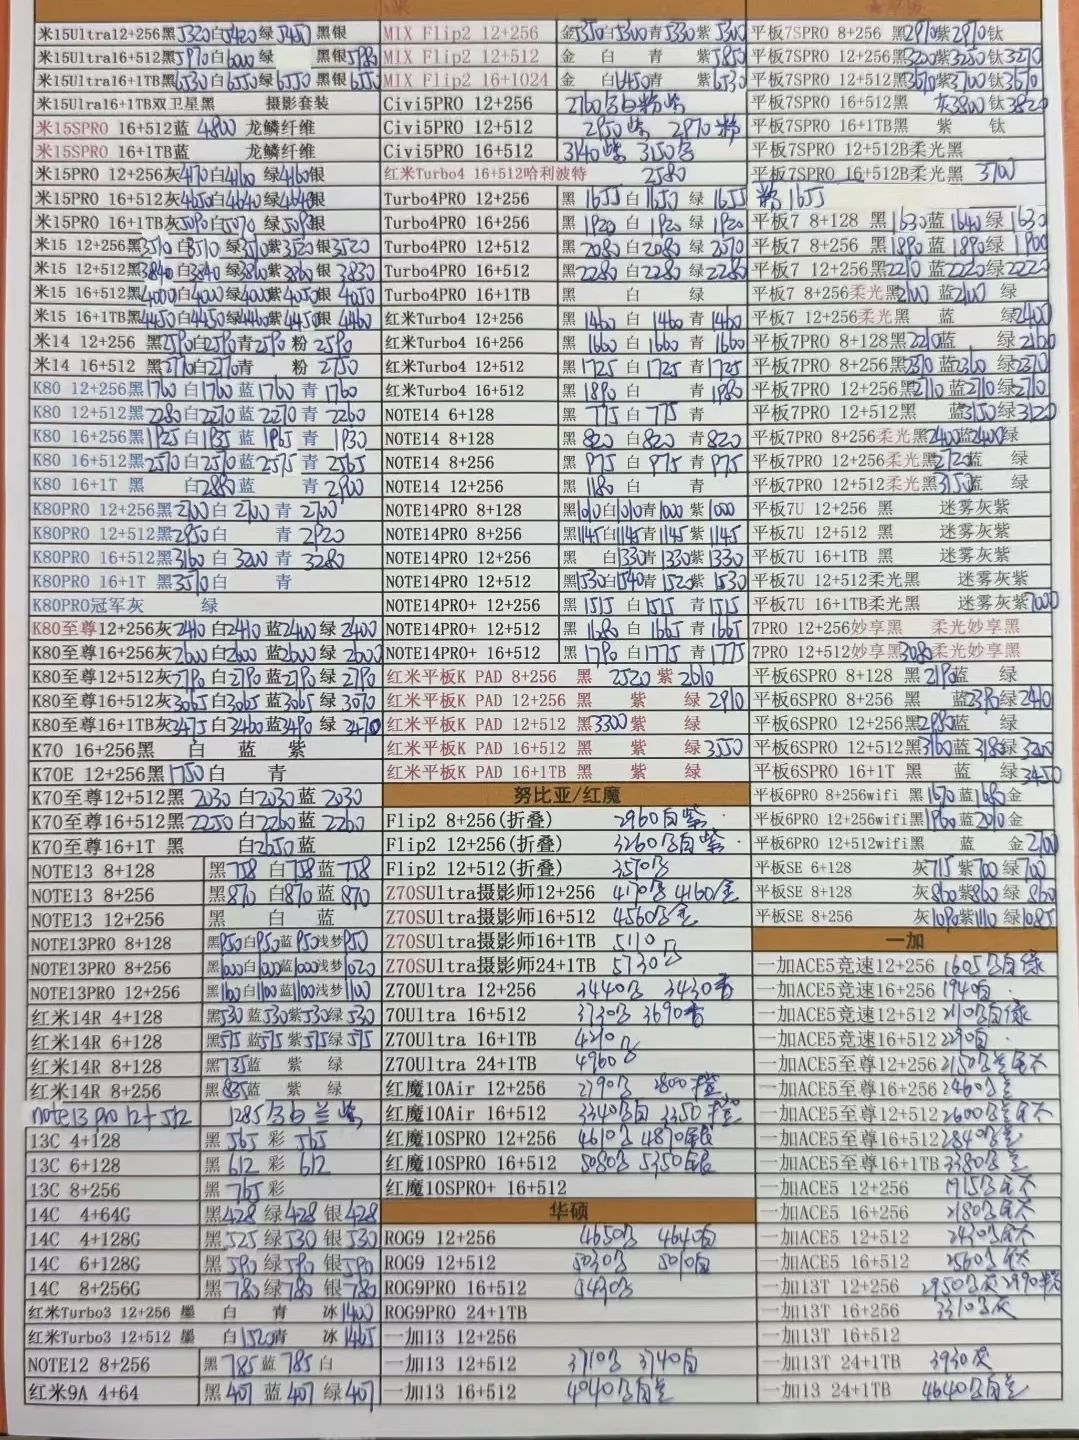 小米
米15Ultra12+256黑5320白5420绿5450 黑银
米15Ultra16+512黑5970白6000绿 黑银5980
米15Ultra16+1TB黑6530白6550绿6550黑银6550
米15Ulra16+1TB双卫星黑 摄影套装
米15SPRO 16+512蓝 4800 龙鳞纤维
米15SPRO 16+1TB蓝 龙鳞纤维
米15PRO 12+256灰4170白4160 绿4160银
米15PRO 16+512灰4650白4640绿4640银
米15PRO 16+1TB灰5090白5070 绿5090银
米15 12+256黑3510白3510 绿3510紫3520银3520
米15 12+512黑3840白3840 绿3860紫3860银 3830
米15 16+512黑4000白4000绿4000紫4050银 4050
米15 16+1TB黑4450白4450绿4460紫4450银 4460
米14 12+256 黑2590白2590青2590粉 2590
米14 16+512 黑2710白2710青 粉 2750
K80 12+256黑1760 白1760 蓝1760 青 1760
K80 12+512黑2280白2270 蓝2270 青 2260
K80 16+256黑1925 白1935 蓝 1965 青 1930
K80 16+512黑2570白2570 蓝2575 青 2565
K80 16+1T 黑 白2880蓝 青 2900
K80PRO 12+256黑2700白 2700 青 2700
K80PRO 12+512黑2950白 青 2920
K80PRO 16+512黑3160白 3200 青 3280
K80PRO 16+1T 黑3510白 青
K80PRO冠军灰 绿
K80至尊12+256灰2410 白2410 蓝2400 绿 2400
K80至尊16+256灰2600 白2600 蓝2600 绿 2600
K80至尊12+512灰2790 白2790 蓝2790 绿 2790
K80至尊16+512灰3065白3065 蓝3065 绿 3070
K80至尊16+1TB灰3475白3460蓝3490 绿 3470
K70 16+256黑 白 蓝 紫
K70E 12+256黑1750白 青
K70至尊12+512黑 2030 白2030蓝 2030
K70至尊16+512黑 2250 白2260蓝 2260
K70至尊16+1T 黑 白2650蓝
NOTE13 8+128 黑758 白758蓝758
NOTE13 8+256 黑870 白870蓝 870
NOTE13 12+256 黑 白 蓝
NOTE13PRO 8+128 黑950白950蓝950浅梦950
NOTE13PRO 8+256 黑1000白1000蓝1000浅梦1020
NOTE13PRO 12+256 黑1100白1100蓝1100浅梦1100
红米14R 4+128 黑530 蓝530紫530绿530
红米14R 6+128 黑575 蓝575紫575绿575
红米14R 8+128 黑735蓝 紫 绿
红米14R 8+256 黑835蓝 紫 绿
note13 pro 12+512 1285黑白兰紫
13C 4+128 黑 565 彩 565
13C 6+128 黑 612 彩 612
13C 8+256 黑 765 彩
14C 4+64G 黑428 绿428 银428
14C 4+128G 黑525 绿530 银530
14C 6+128G 黑590 绿590 银590
14C 8+256G 黑780 绿780 银780
红米Turbo3 12+256 墨 白 青 冰1400
红米Turbo3 12+512 墨 白1520青 冰1465
NOTE12 8+256 黑785蓝785白
红米9A 4+64 黑407 蓝407 绿407
MIX Flip2 12+256 金5350白5300青5330紫5300
MIX Flip2 12+512 金 白 青 紫5850
MIX Flip2 16+1024 金 白6450青 紫6530
Civi5PRO 12+256 2760黑白粉紫
Civi5PRO 12+512 2950紫 2970粉
Civi5PRO 16+512 3140紫 3150黑
红米Turbo4 16+512哈利波特 2580
Turbo4PRO 12+256 黑 1655白1650绿 1655 粉1655
Turbo4PRO 16+256 黑 1920白 1920绿 1920
Turbo4PRO 12+512 黑 2080白2080绿 2070
Turbo4PRO 16+512 黑 2280白2280绿 2280
Turbo4PRO 16+1TB 黑 白 绿
红米Turbo4 12+256 黑 1460白 1460青 1460
红米Turbo4 16+256 黑 1660白 1660青 1660
红米Turbo4 12+512 黑 1725白 1725青1725
红米Turbo4 16+512 黑 1890白 青 1980
NOTE14 6+128 黑 775 白 775 青
NOTE14 8+128 黑 820 白820 青820
NOTE14 8+256 黑 975 白 975 青975
NOTE14 12+256 黑 1180 白 青
NOTE14PRO 8+128 黑1010白1010青1000 紫1000
NOTE14PRO 8+256 黑1145白1145青1145紫1145
NOTE14PRO 12+256 黑 白1330青1330紫1330
NOTE14PRO 12+512 黑1530白1540青1520紫1530
NOTE14PRO+ 12+256 黑 1515 白1515 青1515
NOTE14PRO+ 12+512 黑 1680 白 1665 青1665
NOTE14PRO+ 16+512 黑 1790 白1775 青1775
红米平板K PAD 8+256 黑 2520 紫2610
红米平板K PAD 12+256 黑 紫 绿 2910
红米平板K PAD 12+512 黑3300紫 绿
红米平板K PAD 16+512 黑 紫 绿3550
红米平板K PAD 16+1TB 黑 紫 绿
努比亚/红魔
Flip2 8+256(折叠) 2960白紫
Flip2 12+256(折叠) 3260黑白紫
Flip2 12+512(折叠) 3570黑
Z70SUltra摄影师12+256 4170黑4160金
Z70SUltra摄影师16+512 4560黑金
Z70SUltra摄影师16+1TB 5110黑
Z70SUltra摄影师24+1TB 5730黑
Z70Ultra 12+256 3440黑 3430香
70Ultra 16+512 3730黑 3690香
Z70Ultra 16+1TB 4210黑
Z70Ultra 24+1TB 4960黑
红魔10Air 12+256 2790黑 2800
红魔10Air 16+512 3340黑白 3350
红魔10SPRO 12+256 4610黑 4870银
红魔10SPRO 16+512 5080黑 5350银
红魔10SPRO+ 16+512
华硕
ROG9 12+256 4650黑 4640白
ROG9 12+512 5030黑 5010白
ROG9PRO 16+512 5430黑
ROG9PRO 24+1TB
一加13 12+256
一加13 12+512 3710黑 3740白
一加13 16+512 4040黑白兰
平板7SPRO 8+256 黑2910紫2910钛
平板7SPRO 12+256黑3200紫3250钛3270
平板7SPRO 12+512黑3670紫3700钛3670
平板7SPRO 16+512黑 灰3800钛3820
平板7SPRO 16+1TB黑 紫 钛
平板7SPRO 12+512B柔光黑
平板7SPRO 16+512B柔光黑 3700
平板7 8+128 黑1630蓝1640 绿1630
平板7 8+256 黑1890蓝1890绿1900
平板7 12+256黑2210 蓝2220绿2220
平板7 8+256柔光黑2100 蓝2100 绿
平板7 12+256柔光黑 蓝 绿2400
平板7PRO 8+128黑2210蓝 绿2160
平板7PRO 8+256黑2370蓝2360 绿2370
平板7PRO 12+256黑2710蓝2710绿2710
平板7PRO 12+512黑 蓝3150绿3120
平板7PRO 8+256柔光黑2400蓝2400绿
平板7PRO 12+256柔光黑2720蓝 绿
平板7PRO 12+512柔光黑3150蓝 绿
平板7U 12+256 黑 迷雾灰紫
平板7U 12+512 黑 迷雾灰紫
平板7U 16+1TB 黑 迷雾灰紫
平板7U 12+512柔光黑 迷雾灰紫
平板7U 16+1TB柔光黑 迷雾灰紫7000
7PRO 12+256妙享黑 柔光妙享黑
7PRO 12+512妙享黑3080柔光妙享黑
平板6SPRO 8+128 黑2190蓝 绿
平板6SPRO 8+256 黑 蓝2390绿2410
平板6SPRO 12+256黑2980蓝 绿
平板6SPRO 12+512黑3160蓝3185绿3200
平板6SPRO 16+1T 黑 蓝 绿3450
平板6PRO 8+256wifi 黑1670蓝1680金
平板6PRO 12+256wifi黑1960蓝2010金
平板6PRO 12+512wifi黑 蓝 金2700
平板SE 6+128 灰715紫700绿700
平板SE 8+128 灰860紫860 绿 860
平板SE 8+256 灰1090紫1110 绿1085
一加
一加ACE5竞速12+256 1605黑白绿
一加ACE5竞速16+256 1940白
一加ACE5竞速12+512 2110黑白绿
一加ACE5竞速16+512 2290白
一加ACE5至尊12+256 2150黑兰钛
一加ACE5至尊16+256 2460黑兰
一加ACE5至尊12+512 2600黑兰钛
一加ACE5至尊16+512 2840黑兰
一加ACE5至尊16+1TB 3380黑兰
一加ACE5 12+256 1915黑钛
一加ACE5 16+256 2180黑钛
一加ACE5 12+512 2430黑钛
一加ACE5 16+512 2560黑钛
一加13T 12+256 2950黑灰2990粉
一加13T 16+256 3310黑灰
一加13T 16+512
一加13T 24+1TB 3930灰
一加13 24+1TB 4640黑白兰